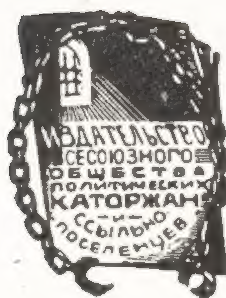 ИЗДАТЕЛЬСТВО
ВСЕСОЮЗНОГО
ОБЩЕСТВА
ПОЛИТИЧЕСКИХ
КАТОРЖАН
-И-
ССЫЛЬНО
ПОСЕЛЕНЦЕВ